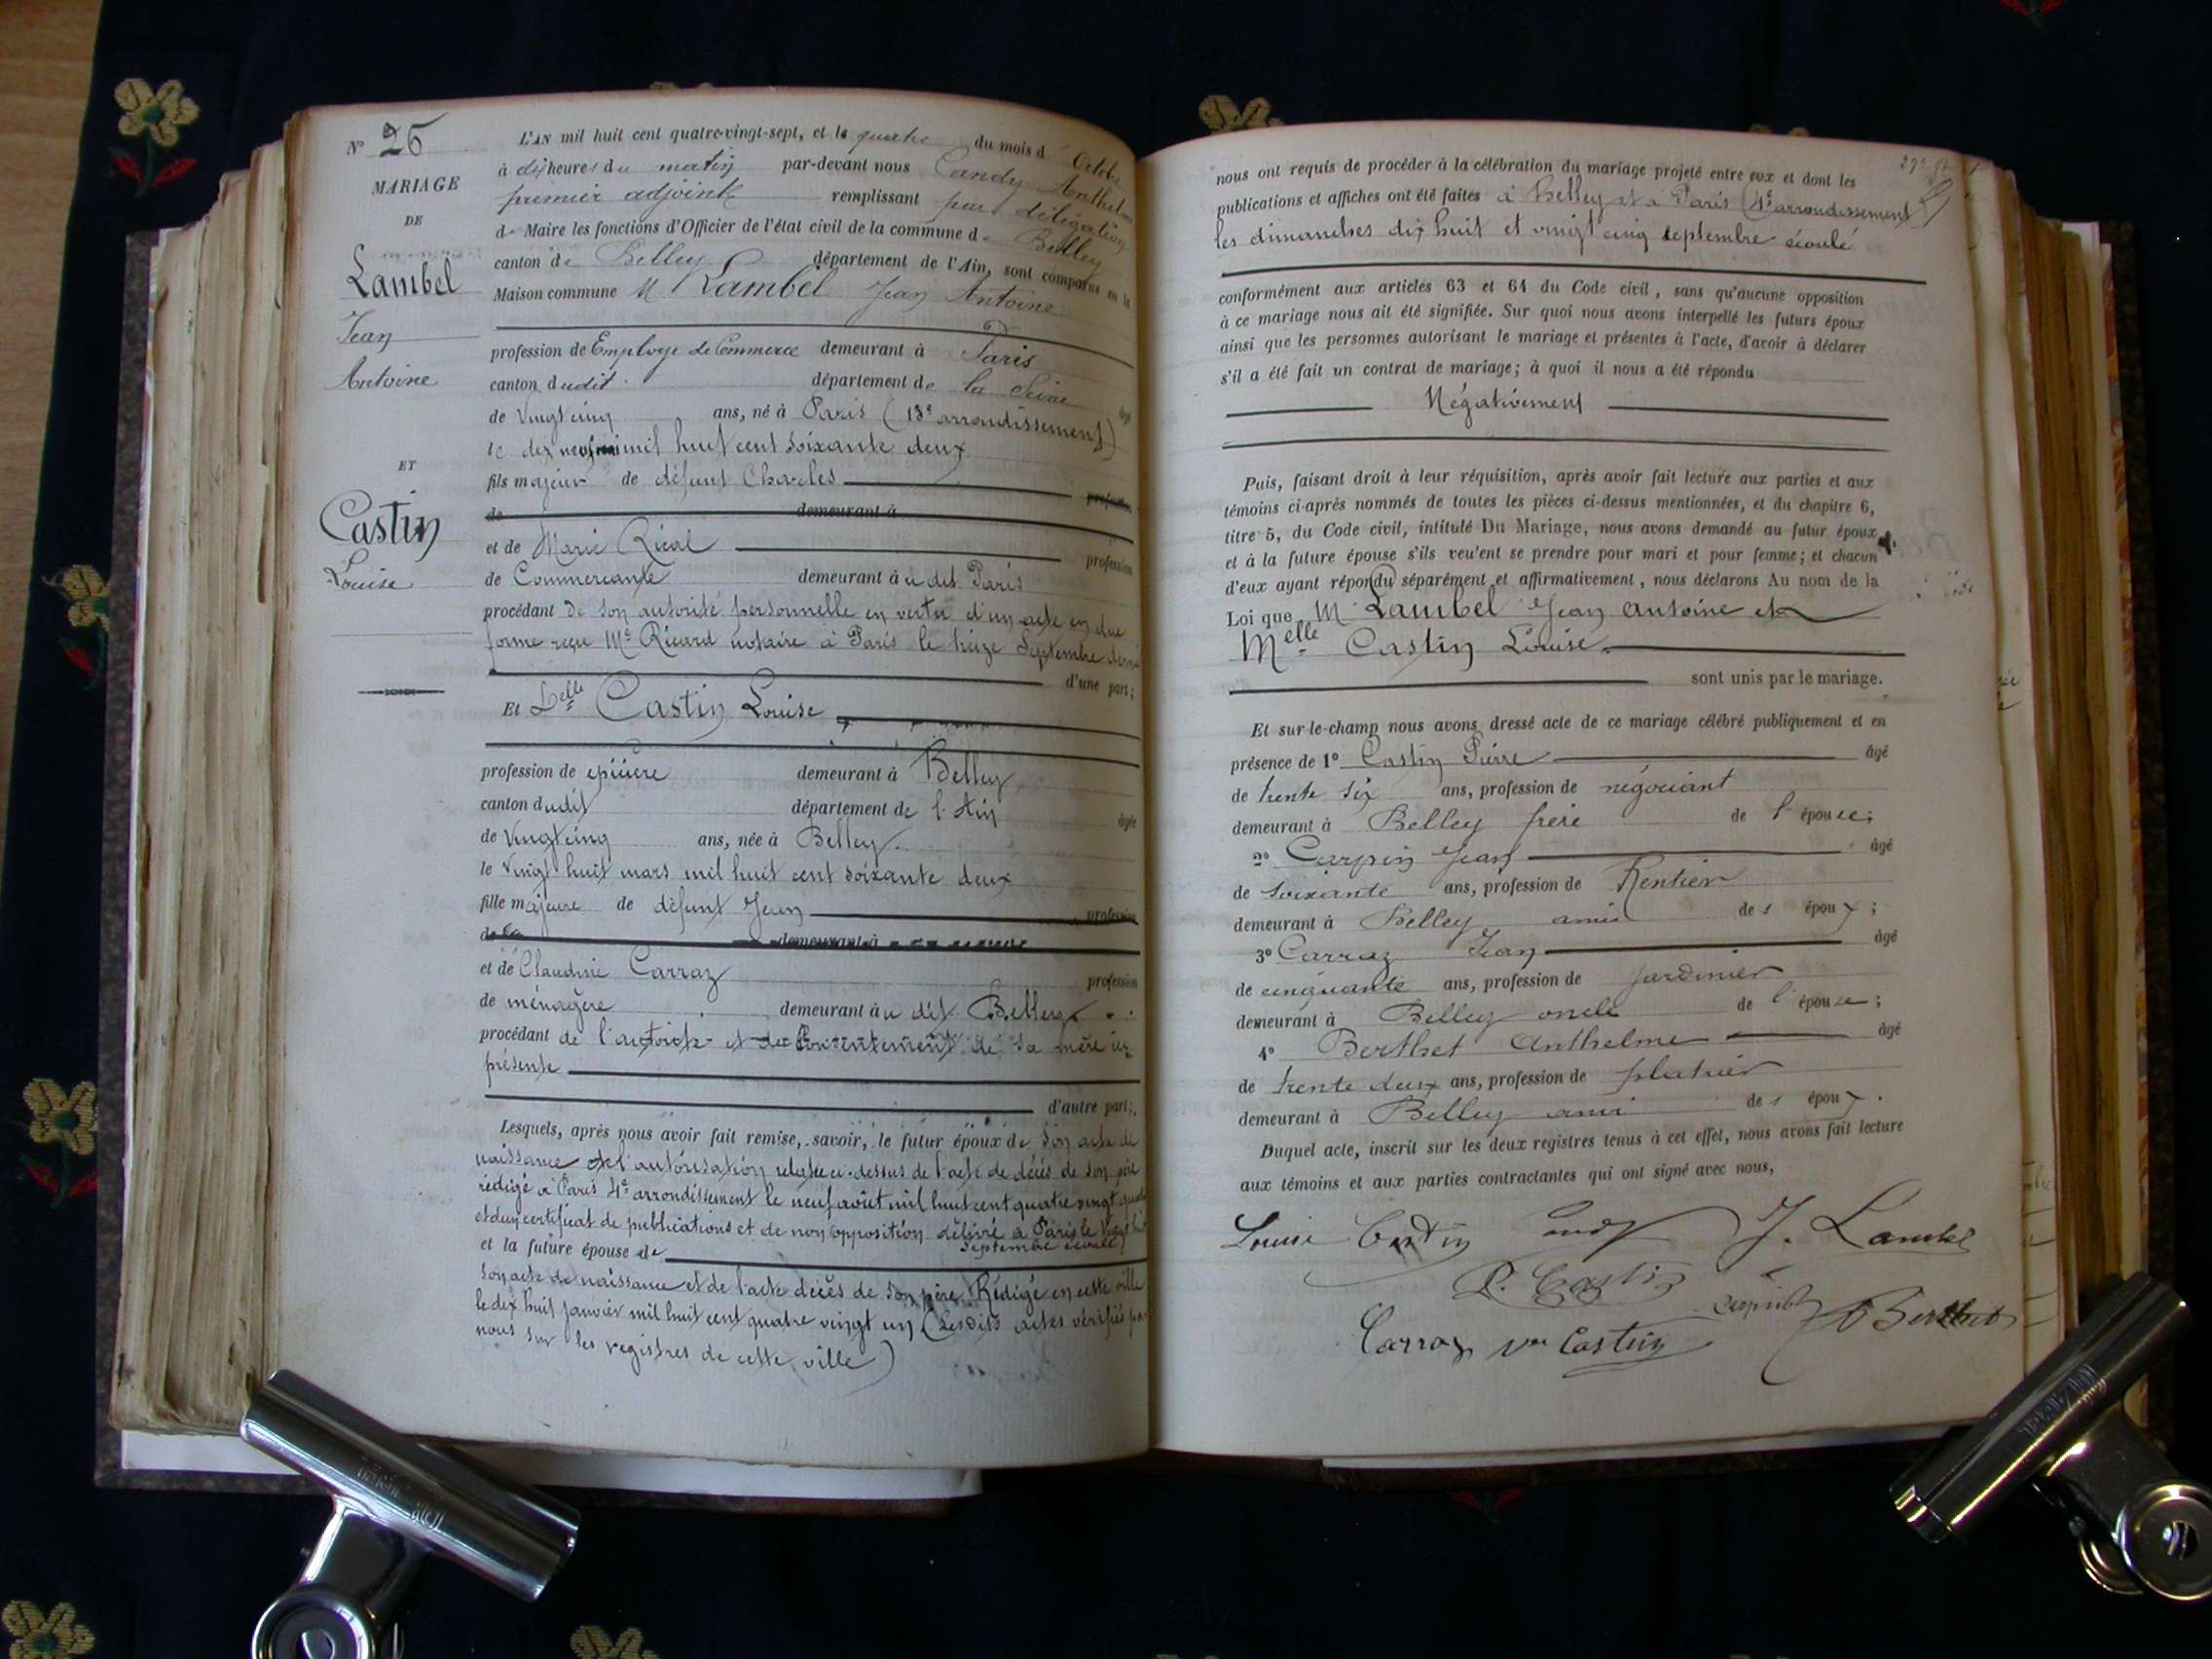 N° 26
MARIAGE
DE
Lambel
Jean
Antoine
ET
Castin
Louise
L'AN mil huit cent quatre-vingt-sept, et le quatre du mois d'Octobre
à dix heures du matin par-devant nous Candy Anthelme
premier adjoint remplissant par délégation
de Maire les fonctions d'Officier de l'état civil de la commune de Belley
canton de Belley département de l'Ain, sont comparus en la
Maison commune M Lambel Jean Antoine
profession de Employé de Commerce demeurant à Paris
canton dudit département de la Seine âgé
de Vingt cinq ans, né à Paris (13e arrondissement)
le dix neuf mai mil huit cent soixante deux
fils majeur de défunt Charles profession
de demeurant à
et de Marie Rical profession
de Commerçante demeurant à u dit Paris
procédant de son autorité personnelle en vertu d'un acte en due
forme reçu Me Ricard notaire à Paris le treize Septembre dernier
d'une part;
Et Delle Castin Louise
profession de epicière demeurant à Belley
canton dudit département de l'Ain âgée
de Vingt cinq ans, née à Belley.
le Vingt huit mars mil huit cent soixante deux
fille majeure de défunt Jean profession
de demeurant à
et de Claudine Carraz profession
de ménagère demeurant à u dit Belley
procédant de l'autorité et du Consentement de sa mère ici
présente
d'autre part;
Lesquels, après nous avoir fait remise, savoir, le futur époux de son acte de
naissance de l'autorisation relatée ci-dessus de l'acte de décès de son père
rédigé à Paris 4e arrondissement le neuf août mil huit cent quatre vingt quatre
et d'un certificat de publications et de non opposition délivré à Paris le Vingt huit
septembre écoulé
et la future épouse de
son acte de naissance et de l'acte décès de son père Rédigé en cette ville
le dix huit janvier mil huit cent quatre vingt un (Lesdits actes vérifiés par
nous sur les registres de cette ville)
nous ont requis de procéder à la célébration du mariage projeté entre eux et dont les
publications et affiches ont été faites à Belley et à Paris (4e arrondissement)
les dimanches dix huit et vingt cinq septembre écoulé
conformément aux articles 63 et 64 du Code civil, sans qu'aucune opposition
à ce mariage nous ait été signifiée. Sur quoi nous avons interpellé les futurs époux
ainsi que les personnes autorisant le mariage et présentes à l'acte, d'avoir à déclarer
s'il a été fait un contrat de mariage; à quoi il nous a été répondu
Négativement
Puis, faisant droit à leur réquisition, après avoir fait lecture aux parties et aux
témoins ci-après nommés de toutes les pièces ci-dessus mentionnées, et du chapitre 6,
titre 5, du Code civil, intitulé Du Mariage, nous avons demandé au futur époux
et à la future épouse s'ils veu'ent se prendre pour mari et pour femme; et chacun
d'eux ayant répondu séparément et affirmativement, nous déclarons Au nom de la
Loi que M Lambel Jean Antoine et
Melle Castin Louise
sont unis par le mariage.
Et sur-le-champ nous avons dressé acte de ce mariage célébré publiquement et en
présence de 1° Castin Pierre âgé
de trente six ans, profession de négociant
demeurant à Belley frère de l'épouse;
2° Carpin Jean âgé
de soixante ans, profession de Rentier
demeurant à Belley ami de s époux;
3° Carraz Jean âgé
de cinquante ans, profession de jardinier
demeurant à Belley oncle de l'épouse;
4° Berthet Anthelme âgé
de trente deux ans, profession de platrier
demeurant à Belley ami de s époux.
Duquel acte, inscrit sur les deux registres tenus à cet effet, nous avons fait lecture
aux témoins et aux parties contractantes qui ont signé avec nous,
Louise Castin Candy J. Lambel
P. Castin
Berthet
Carraz Vve Castin